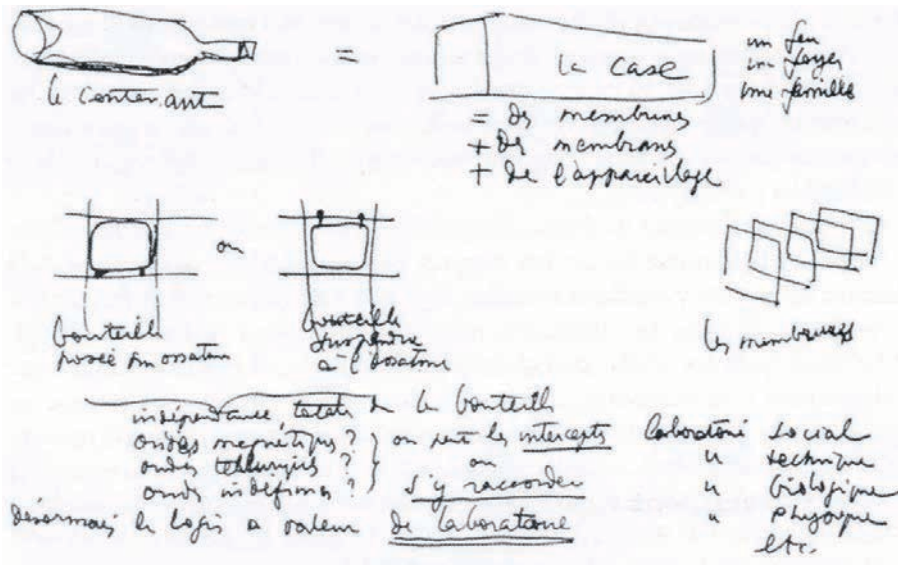 le contenant
=
la case
un feu
un foyer
une famille
= des membrures
+ des membranes
+ de l'appareillage
ou
bouteille
posée sur ossature
bouteille
suspendue
à l'ossature
les membrures
indépendance totale de la bouteille
ondes magnétiques
ondes telluriques ?
ondes indéfinies ?
on peut les intercepter
ou
s'y raccorder
désormais le logis a valeur de laboratoire
Laboratoire social
" technique
" biologique
" physique
etc.